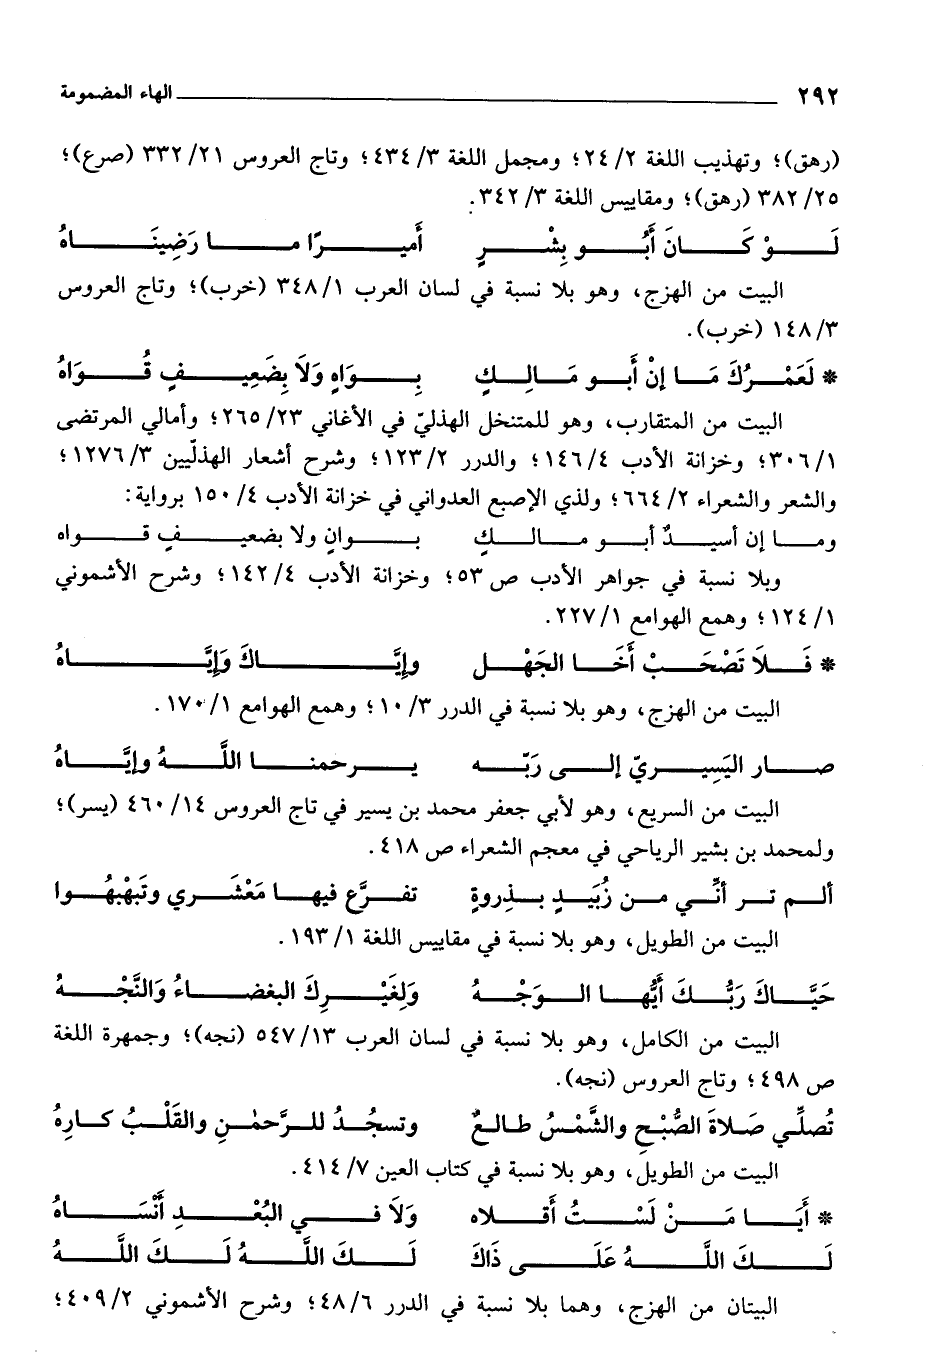 ٢٩٢ الهاء المضمومة
(رهق)؛ وتهذيب اللغة ٢٤/٢؛ ومجمل اللغة ٤٣٤/٣؛ وتاج العروس ٣٣٢/٢١ (صرع)؛
٣٨٢/٢٥ (رهق)؛ ومقاييس اللغة ٣٤٢/٣.
لَوْ كَانَ أَبُو بِشْرٍ أَميرًا ما رَضِينَاهُ
البيت من الهزج، وهو بلا نسبة في لسان العرب ٣٤٨/١ (خرب)؛ وتاج العروس
١٤٨/٣ (خرب).
* لَعَمْرُكَ مَا إنْ أَبو مَالِكٍ بِوَاهٍ وَلَا بِضَعِيفٍ قُوَاهُ
البيت من المتقارب، وهو للمتنخل الهذليّ في الأغاني ٢٦٥/٢٣؛ وأمالي المرتضى
٣٠٦/١؛ وخزانة الأدب ١٤٦/٤؛ والدرر ١٢٣/٢؛ وشرح أشعار الهذليين ١٢٧٦/٣؛
والشعر والشعراء ٦٦٤/٢؛ ولذي الإصبع العدواني في خزانة الأدب ١٥٠/٤ برواية:
وما إن أسيدٌ أبو مالكٍ بوانٍ ولا بضعيفٍ قواه
وبلا نسبة في جواهر الأدب ص ٥٣؛ وخزانة الأدب ١٤٢/٤؛ وشرح الأشموني
١٢٤/١؛ وهمع الهوامع ٢٢٧/١.
* فَلَا تَصْحَبْ أَخَا الجَهْل وإيَّاكَ وَإيَّاهُ
البيت من الهزج، وهو بلا نسبة في الدرر ١٠/٣؛ وهمع الهوامع ١٧٠/١.
صار اليَسِيريّ إلى رَبّه يرحمنا اللَّهُ وإيَّاهُ
البيت من السريع، وهو لأبي جعفر محمد بن يسير في تاج العروس ٤٦٠/١٤ (يسر)؛
ولمحمد بن بشير الرياحي في معجم الشعراء ص ٤١٨.
ألم تر أنّي من زُبَيدٍ بذِروةٍ تفرَّع فيها مَعْشَري وتَبَهْبَهُوا
البيت من الطويل، وهو بلا نسبة في مقاييس اللغة ١٩٣/١.
حَيَّاكَ رَبُّكَ أَيُّها الوَجْهُ وَلِغَيْرِكَ البغضاءُ وَالنَّجْهُ
البيت من الكامل، وهو بلا نسبة في لسان العرب ٥٤٧/١٣ (نجه)؛ وجمهرة اللغة
ص ٤٩٨؛ وتاج العروس (نجه).
تُصلِّي صَلاةَ الصُّبْحِ والشَّمْسُ طالعٌ وتسجُدُ للرَّحمٰنِ والقَلْبُ كارِهُ
البيت من الطويل، وهو بلا نسبة في كتاب العين ٤١٤/٧.
* أَيَا مَنْ لَسْتُ أَقْلاه وَلَا في البُعْدِ أَنْسَاهُ
لَكَ اللَّهُ عَلَى ذَاكَ لَكَ اللَّهُ لَكَ اللَّهُ
البيتان من الهزج، وهما بلا نسبة في الدرر ٤٨/٦؛ وشرح الأشموني ٤٠٩/٢؛